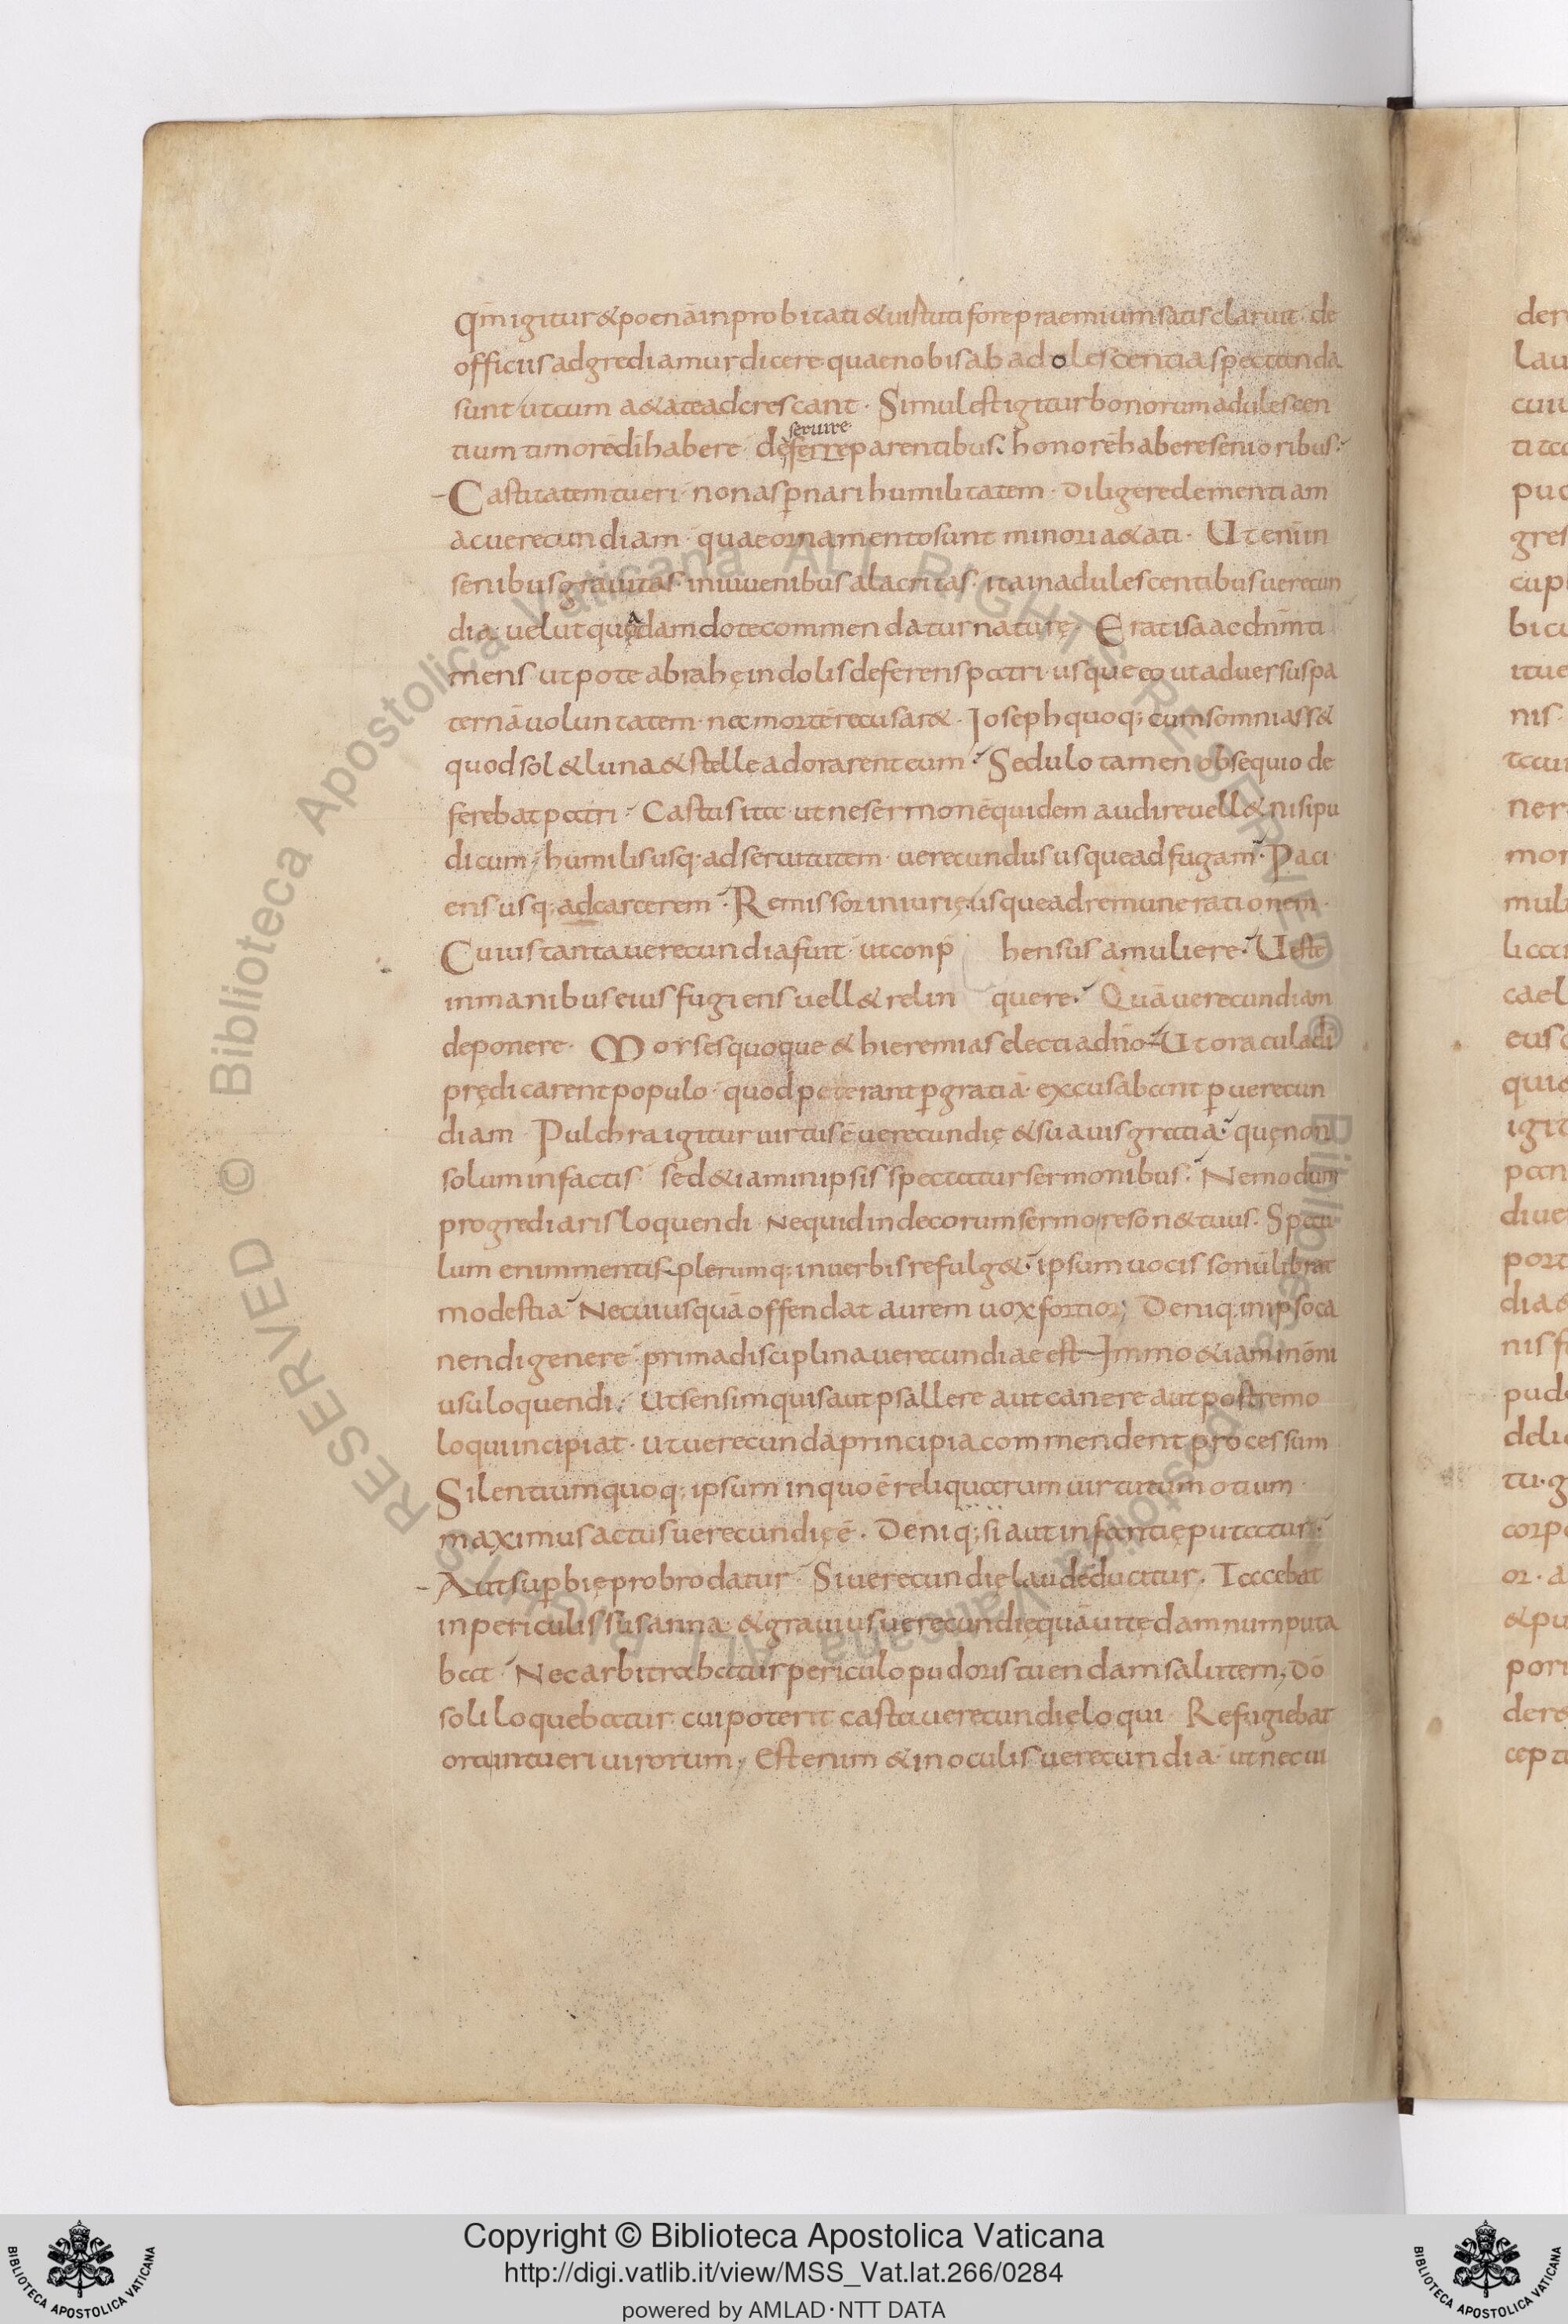 Qm̄ igitur & poenā inprobitati & uirtuti fore praemium satis claruit · de
officiis adgrediamur dicere quae nobis ab adolescentia spectanda
sunt ut cum a&ate adcrescant · Simul est igitur bonorum adulescen
tium timorē dī habere deferre parentibus · honorē habere senioribus ·
seruire
Castitatem tueri · non asp̄nari humilitatem · Diligere clementiam
ac uerecundiam · quae ornamento sunt minori a&ati · Ut enī in
senibus grauitas · in iuuenibus alacritas · ita in adulescentibus uerecun
dia uelut quędam dote commendatur naturę Erat isaac dn̄m ti
mens ut pote abrahę indolis deferens patri · usque eo ut aduersus pa
ternā uoluntatem · nec mortē recusar& · Ioseph quoq; cum somniass&
quod sol & luna & stellę adorarent eum · Sedulo tamen obsequio de
ferebat patri · Castus ita · ut ne sermonē quidem audire uell& nisi pu
dicum, humilis usq; ad seruitutem · uerecundus usque ad fugam · Paci
ens usq; ad carcerem · Remissor iniurię usque ad remunerationem ·
Cuius tanta uerecundia fuit · ut conp̄ hensus a muliere · Ueste
in manibus eius fugiens uell& relin quere · Quā uerecundiam
deponere · Moyses quoque & hieremias electi a dn̄o · Ut oracula dī
prędicarent populo · quod poterant p̄ gratiā · excusabant p̄ uerecun
diam Pulchra igitur uirtus ē uerecundię & suauis gratia · quę non
solum in factis sed &iam in ipsis spectatur sermonibus · Ne modum
progrediaris loquendi · Ne quid indecorum sermo reson& tuus · Specu
lum enim mentis plerumq; in uerbis refulg& · ipsum uocis sonū librat
modestia Ne cuiusquā offendat aurem uox fortior; Deniq; in ipso ca
nendi genere · prima disciplina uerecundiae est Immo &iam in ōni
usu loquendi, Ut sensim quis aut psallere aut canere aut postremo
loqui incipiat · ut uerecunda principia commendent processum
Silentium quoq; ipsum in quo ē reliquarum uirtutum otium ·
maximus actus uerecundię ē · Deniq; si aut infantię putatur ·
Aut sup̄bię probro datur · Si uerecundię laudē ducitur · Tacebat
in periculis susanna · & grauius uerecundię quā uitę damnum puta
bat · Nec arbitrabatur periculo pudoris tuendam salutem, dō
soli loquebatur · cui poterit casta uerecundię loqui Refugiebat
ora intueri uirorum, Est enim & in oculis uerecundia · ut nec ui
Copyright © Biblioteca Apostolica Vaticana
http://digi.vatlib.it/view/MSS_Vat.lat.266/0284
powered by AMLAD·NTT DATA